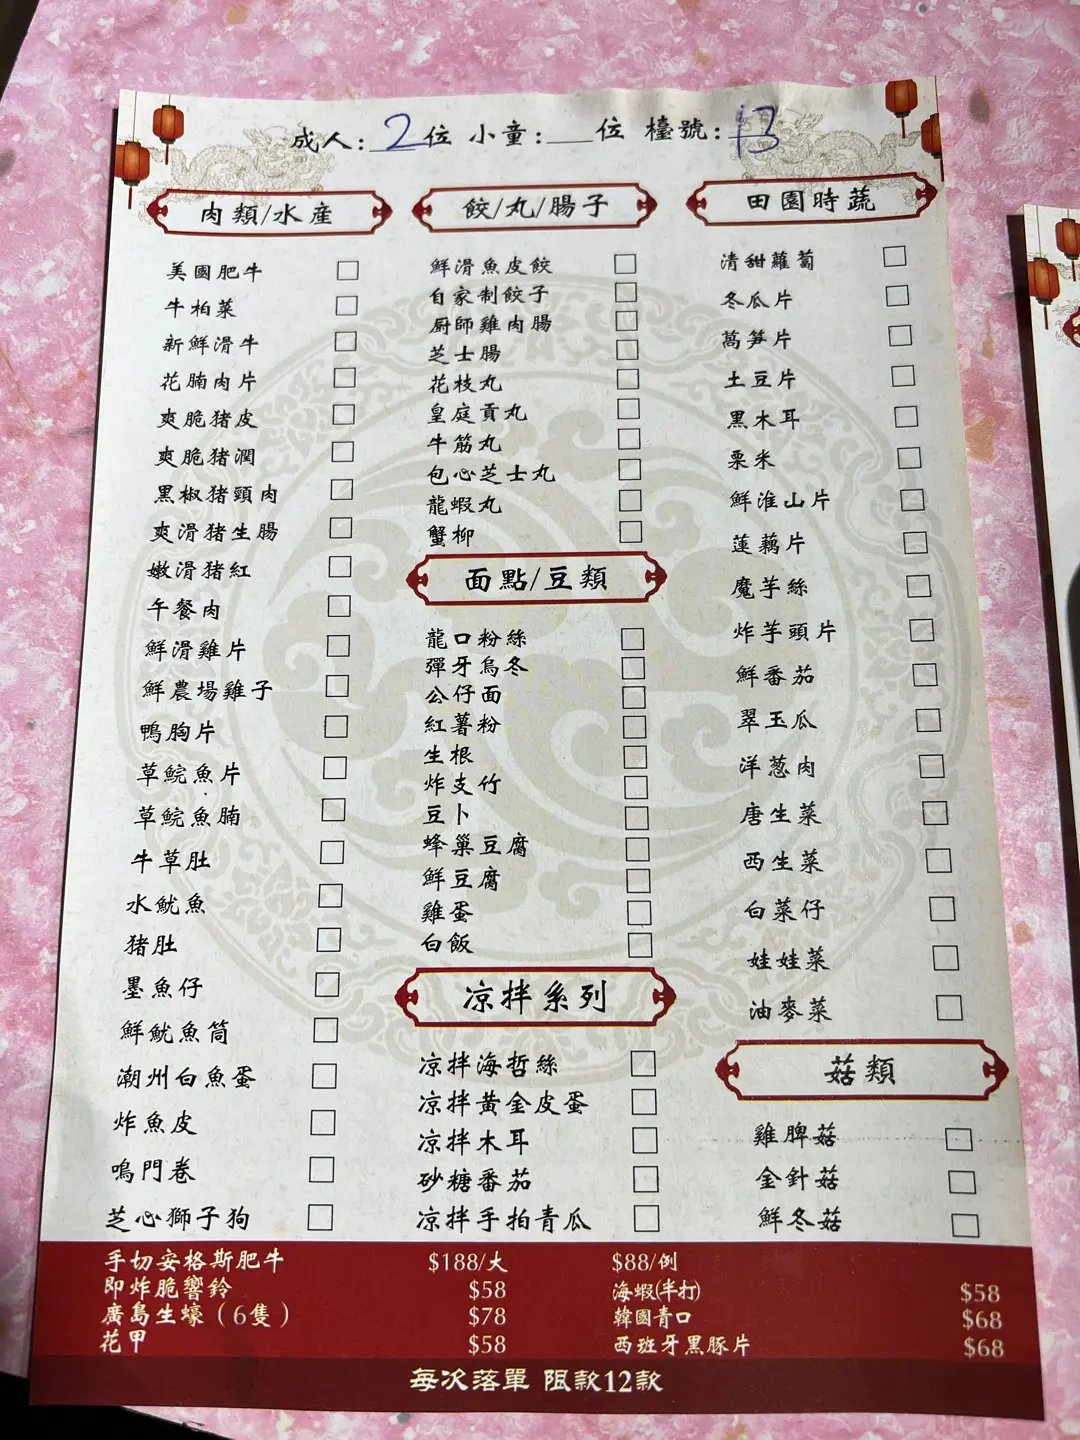 成人:2位 小童:__位 檯號:13
肉類/水産
美國肥牛
牛柏菜
新鮮滑牛
花腩肉片
爽脆猪皮
爽脆猪潤
黑椒猪頸肉
爽滑猪生腸
嫩滑猪紅
午餐肉
鮮滑雞片
鮮農場雞子
鴨胸片
草鯇魚片
草鯇魚腩
牛草肚
水魷魚
猪肚
墨魚仔
鮮魷魚筒
潮州白魚蛋
炸魚皮
鳴門卷
芝心獅子狗
餃/丸/腸子
鮮滑魚皮餃
自家制餃子
厨師雞肉腸
芝士腸
花枝丸
皇庭貢丸
牛筋丸
包心芝士丸
龍蝦丸
蟹柳
面點/豆類
龍口粉絲
彈牙烏冬
公仔面
紅薯粉
生根
炸支竹
豆卜
蜂巢豆腐
鮮豆腐
雞蛋
白飯
凉拌系列
凉拌海哲絲
凉拌黃金皮蛋
凉拌木耳
砂糖番茄
凉拌手拍青瓜
田園時蔬
清甜蘿蔔
冬瓜片
萵笋片
土豆片
黑木耳
栗米
鮮淮山片
蓮藕片
魔芋絲
炸芋頭片
鮮番茄
翠玉瓜
洋葱肉
唐生菜
西生菜
白菜仔
娃娃菜
油麥菜
菇類
雞脾菇
金針菇
鮮冬菇
手切安格斯肥牛 $188/大 $88/例
即炸脆響鈴 $58 海蝦(半打) $58
廣島生蠔（6隻） $78 韓國青口 $68
花甲 $58 西班牙黑豚片 $68
每次落單 限款12款